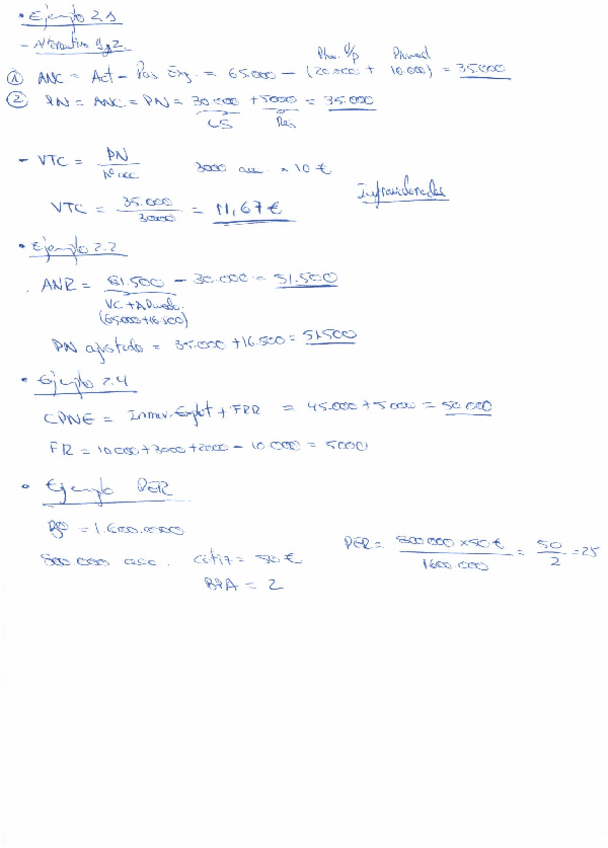 • Ejemplo 2.1
- Alternativa 1 y 2
Pas. l/p Proveed
① ANC = Act - Pas Exg. = 65.000 - (20.000 + 10.000) = 35.000
② PN = ANC = PN = 30.000 + 5000 = 35.000
CS Res
- VTC = PN / Nº acc 3000 acc. x 10 €
Infravaloradas
VTC = 35.000 / 3000 = 11,67 €
• Ejemplo 2.2
ANR = 81.500 - 30.000 = 51.500
VC + A
(65000+16.500)
PN ajustado = 35.000 + 16.500 = 51500
• Ejemplo 2.4
CPNE = Inmov. Explot + FRR = 45.000 + 5000 = 50.000
FR = 10000 + 3000 + 2000 - 10.000 = 5000
• Ejemplo PER
Bº = 1.600.000
800.000 acc. Cotiz = 50 €
PER = 800000 x 50 € / 1600.000 = 50 / 2 = 25
BPA = 2